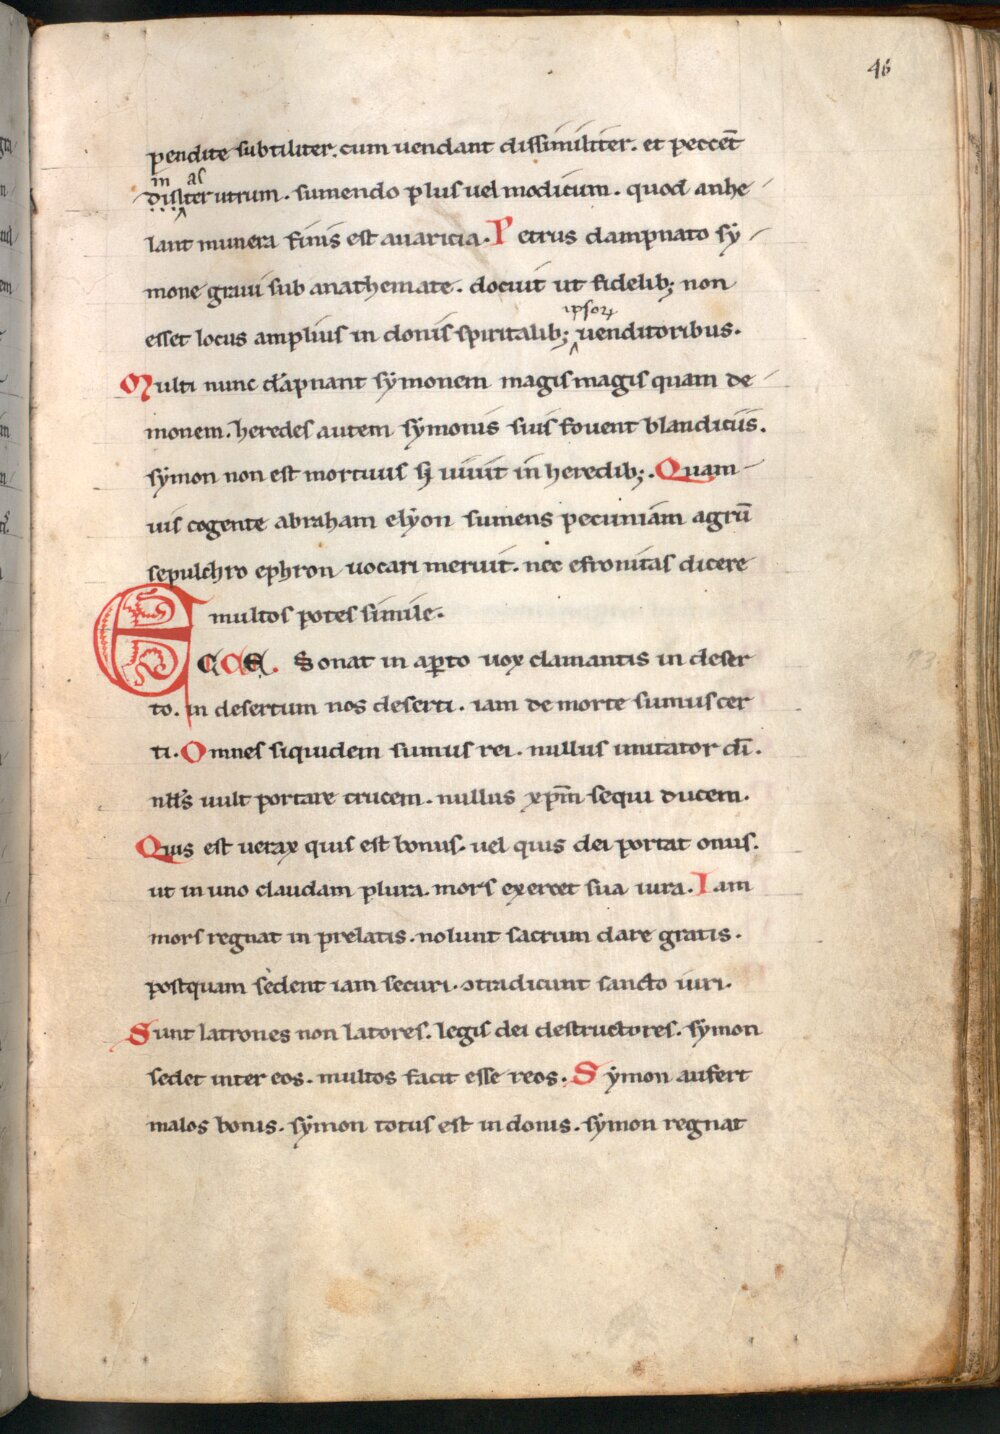 46
pendite subtiliter. cum uendant dissimiliter. et peccet̄
in al
dislter utrum. sumendo plus uel modicum. quod anhe-
lant munera finis est auaricia. Petrus dampnato sy-
mone graui sub anathemate. docuit ut fidelib; non
ipsoꝝ
esset locus amplius in donis spiritalib; uenditoribus.
Multi nunc dāpnant symonem magis magis quam de-
monem. heredes autem symonis suis fouent blandiciis.
symon non est mortuus sꝫ uiuit in heredib;. Quam-
uis cogente abraham elyon sumens pecuniam agrū
sepulchro ephron uocari meruit. nec efronitas dicere
multos potes simile.
ECCE. Sonat in aꝑto uox clamantis in deser
to. in desertum nos deserti. iam de morte sumus cer
ti. Omnes siquidem sumus rei. nullus imitator dī.
nll's uult portare crucem. nullus xpm̄ sequi ducem.
Quis est uerax quis est bonus. uel quis dei portat onus.
ut in uno claudam plura. mors exercet sua iura. Iam
mors regnat in prelatis. nolunt sacrum dare gratis.
postquam sedent iam securi. ↄtradicunt sancto iuri.
Sunt latrones non latores. legis dei destructores. symon
sedet inter eos. multos facit esse reos. Symon aufert
malos bonis. symon totus est in donis. symon regnat